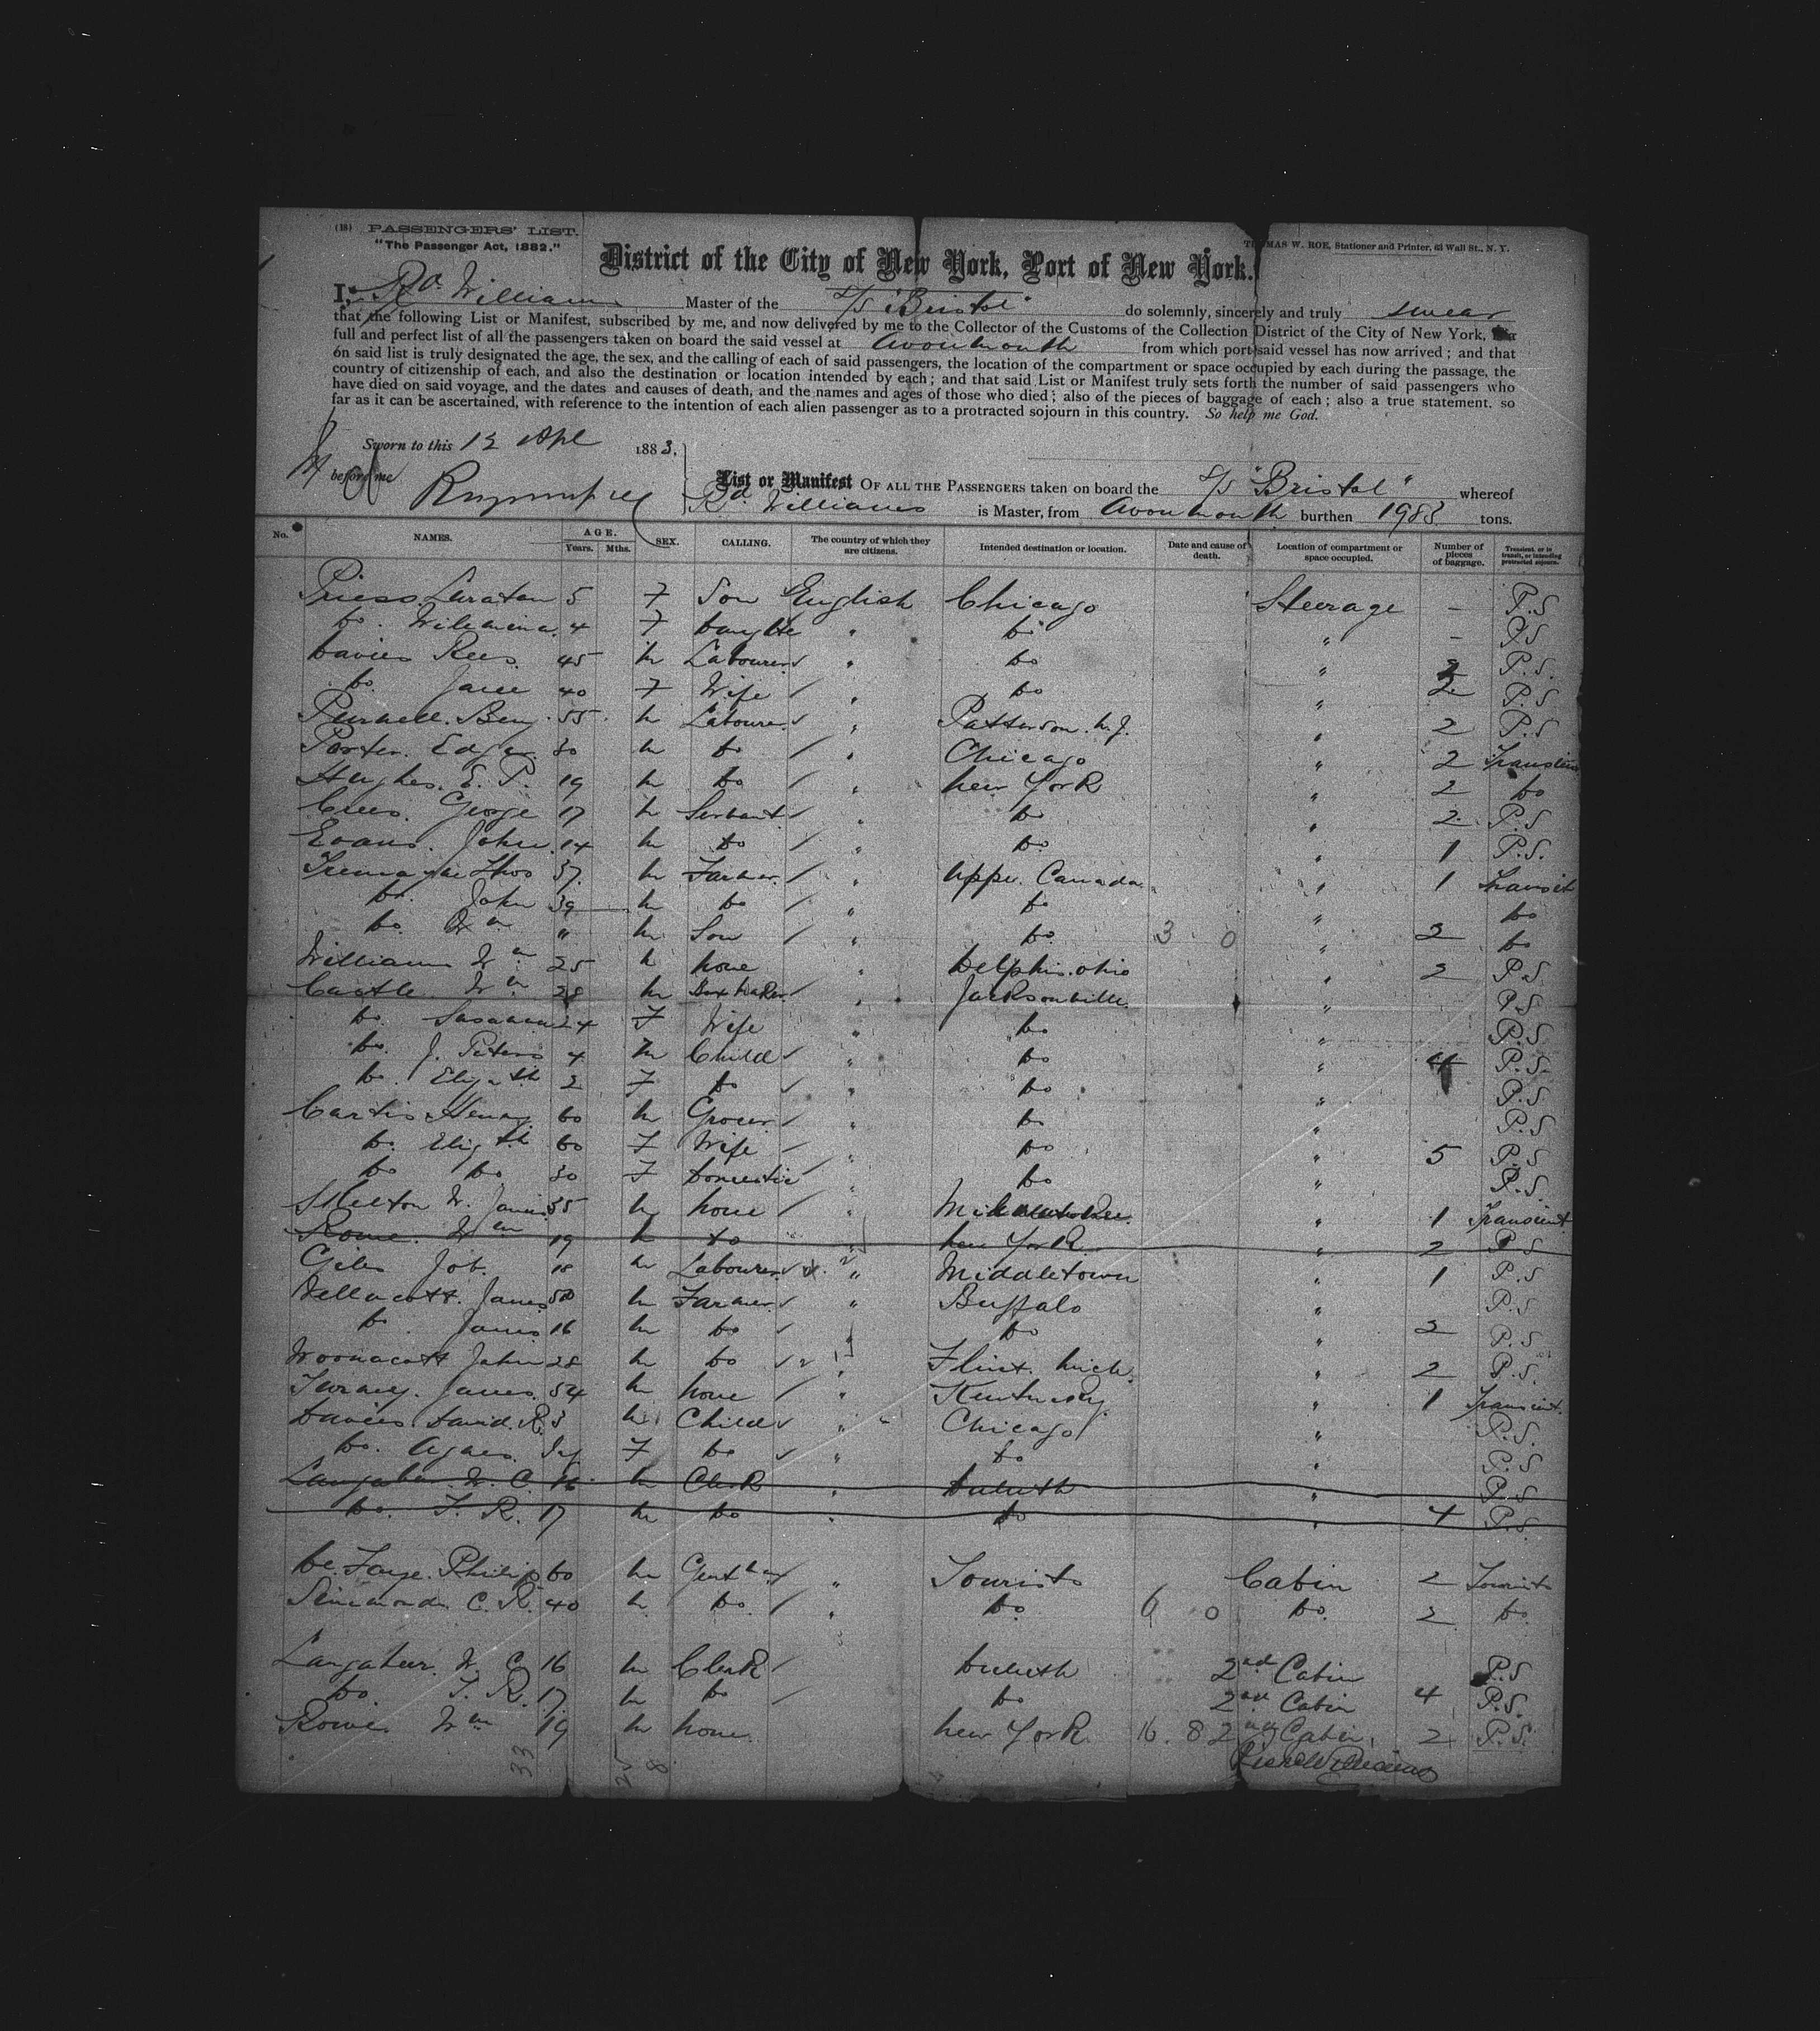 (18) PASSENGERS' LIST.
"The Passenger Act, 1882."
THOMAS W. ROE, Stationer and Printer, 63 Wall St., N. Y.
District of the City of New York, Port of New York.
I, Rd. Williams Master of the S/S "Bristol" do solemnly, sincerely and truly swear
that the following List or Manifest, subscribed by me, and now delivered by me to the Collector of the Customs of the Collection District of the City of New York, is a
full and perfect list of all the passengers taken on board the said vessel at Avonmouth from which port said vessel has now arrived; and that
on said list is truly designated the age, the sex, and the calling of each of said passengers, the location of the compartment or space occupied by each during the passage, the
country of citizenship of each, and also the destination or location intended by each; and that said List or Manifest truly sets forth the number of said passengers who
have died on said voyage, and the dates and causes of death, and the names and ages of those who died; also of the pieces of baggage of each; also a true statement, so
far as it can be ascertained, with reference to the intention of each alien passenger as to a protracted sojourn in this country. So help me God.
Sworn to this 12 Apl 1883,
before me
List or Manifest OF ALL THE PASSENGERS taken on board the S/S "Bristol" whereof
Rd. Williams is Master, from Avonmouth burthen 1983 tons.
No. NAMES. AGE. Years. Mths. SEX. CALLING. The country of which they are citizens. Intended destination or location. Date and cause of death. Location of compartment or space occupied. Number of pieces of baggage. Transient, or in transit, or intending protracted sojourn.
5 F Son English Chicago Steerage - P.S
Do. 4 F Daughter " Do " - P.S
Davies Rees 45 M Labourer " Do " 2 P.S.
Do. Jane 40 F Wife " Do " 2 P.S
Purnell. Benj. 55 M Labourer " Patterson. N.J. " 2 P.S
Porter. Edgar 30 M Do " Chicago " 2 Transient
Hughes. E. P. 19 M Do " New York " 2 Do
Crees. George 17 M Servant " Do " 2 P.S
Evans. John 14 M Do " Do. " 1 P.S.
Thos 37. M Farmer " Upper Canada " 1 Transit
Do. John 39 M Do " Do " Do
Do. Wm " M Son " Do. 3 0 " 2 Do
Williams Wm 25 M None " Delphis. Ohio " 2 P.S
Castle Wm 28 M " Jacksonville " P.S
Do. Susannah 24 F Wife " Do " P.S.
Do. J. Peters 4 M Child " Do " 4 P.S.
Do. Elizath 2 F Do " Do " P.S
Curtis Henry 60 M Grocer " Do " P.S
Do. Elizth 60 F Wife " Do " 5 P.S
Do Do 30 F Domestic " Do " P.S.
Shelton W. James 35 M None " Milwaukee. " 1 Transient
Rowe. Wm 19 M Do " New York " 2 P.S
Giles Job. 18 M Labourer " Middletown " 1 P.S
Vellacott. James 50 M Farmer " Buffalo " P.S
Do. James 16 M Do " Do " 2 P.S.
Woonacott John 28 M Do " Flint. Mich. " 2 P.S.
James. 54 M None " Kentucky " 1 Transient.
Davies David. R. 3 M Child " Chicago " P.S.
Do. Agnes F Do " Do " P.S
W. C. 16 M Clerk " Duluth " P.S
Do. F. R. 17 M Do " Do " 4 P.S.
De. Faye. Philip 60 M " Tourists Cabin 2 Tourists
Simmonds C. R. 40 M Do. " Do. 6 0 Do. 2 Do.
W. C. 16 M Clerk Duluth 2nd Cabin P.S
Do. F. R. 17 M Do Do 2nd Cabin 4 P.S.
Rowe. Wm 19 M None. New York 16. 8 2nd Cabin. 2 P.S.
33 25 8
Richd Williams